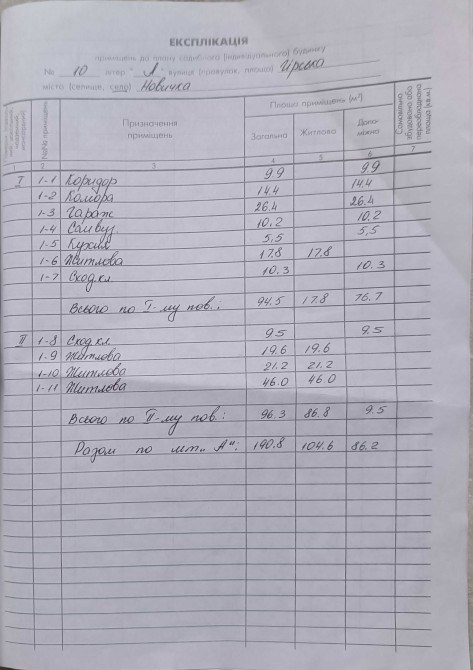 ЕКСПЛІКАЦІЯ
приміщень до плану садибного (індивідуального) будинку
№ 10 літер "А" вулиця (провулок, площа) Гірська
місто (селище, село) Новичка
№№ приміщень Призначення приміщень Площа приміщень (м²) Самовільно збудована або переобладнана площа (кв.м.)
Загальна Житлова Допоміжна
1 2 3 4 5 6 7
I 1-1 Коридор 9.9 9.9
1-2 Комора 14.4 14.4
1-3 Гараж 26.4 26.4
1-4 Сан вуз. 10.2 10.2
1-5 Кухня 5,5 5,5
1-6 Житлова 17.8 17.8
1-7 Сход.кл. 10.3 10.3
Всього по I-му пов.: 94.5 17.8 76.7
II 1-8 Сход кл. 9.5 9.5
1-9 Житлова 19.6 19.6
1-10 Житлова 21.2 21.2
1-11 Житлова 46.0 46.0
Всього по II-му пов.: 96.3 86.8 9.5
Разом по літ. "А": 190.8 104.6 86.2